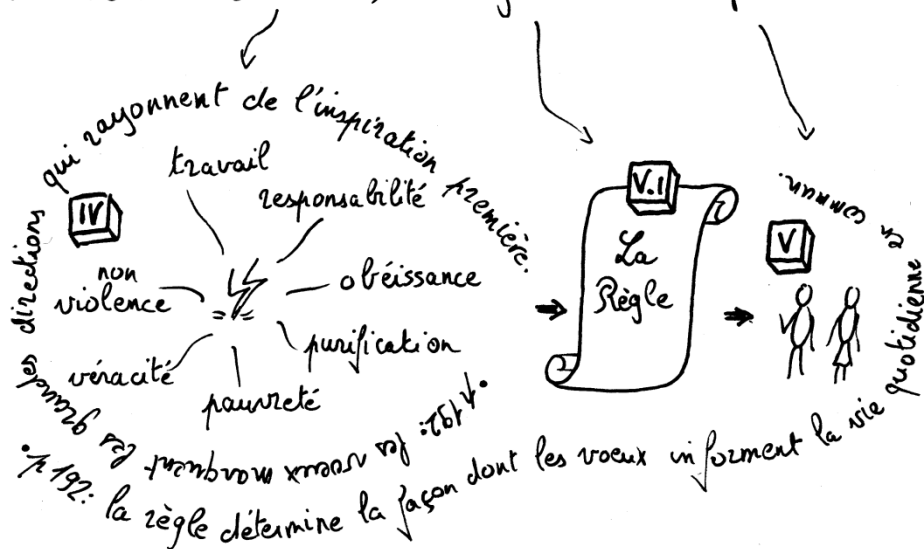 • p 192: les voeux marquent les grandes directions qui rayonnent de l'inspiration première.
IV
travail
responsabilité
obéissance
purification
pauvreté
véracité
non
violence
V.1
La
Règle
V
• p 192: la règle détermine la façon dont les voeux informent la vie quotidienne en commun.